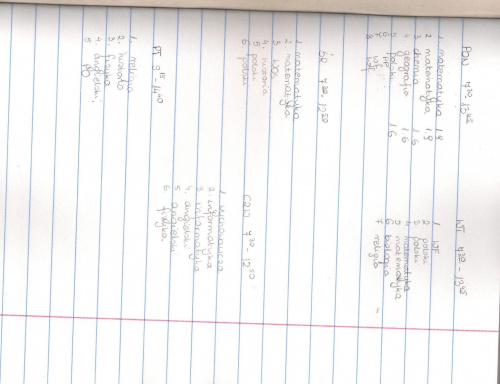 PON 7³⁰ - 13⁴⁵
1 matematyka 1.9
2 matematyka 1.9
3 chemia 1.6
4 geografia 1.6
5 polski 1.6
6 PP
7 WF
8 WF
WT 7³⁰ - 13⁴⁵
1 WF
2 polski
3 polski
4 matematyka
5 matematyka
6 biologia
7 religia
ŚR 7³⁰ - 12⁵⁰
1 matematyka
2 matematyka
3 WOS
4. historia
5. polski
6 polski
CZW 7³⁰ 12⁵⁰
1 wychowawcza
2. informatyka
3 informatyka
4. angielski
5 angielski
6 fizyka
PT 9¹⁵ - 14⁴⁰
1. religia
2. historia
3. fizyka
4. angielski,
5 PO